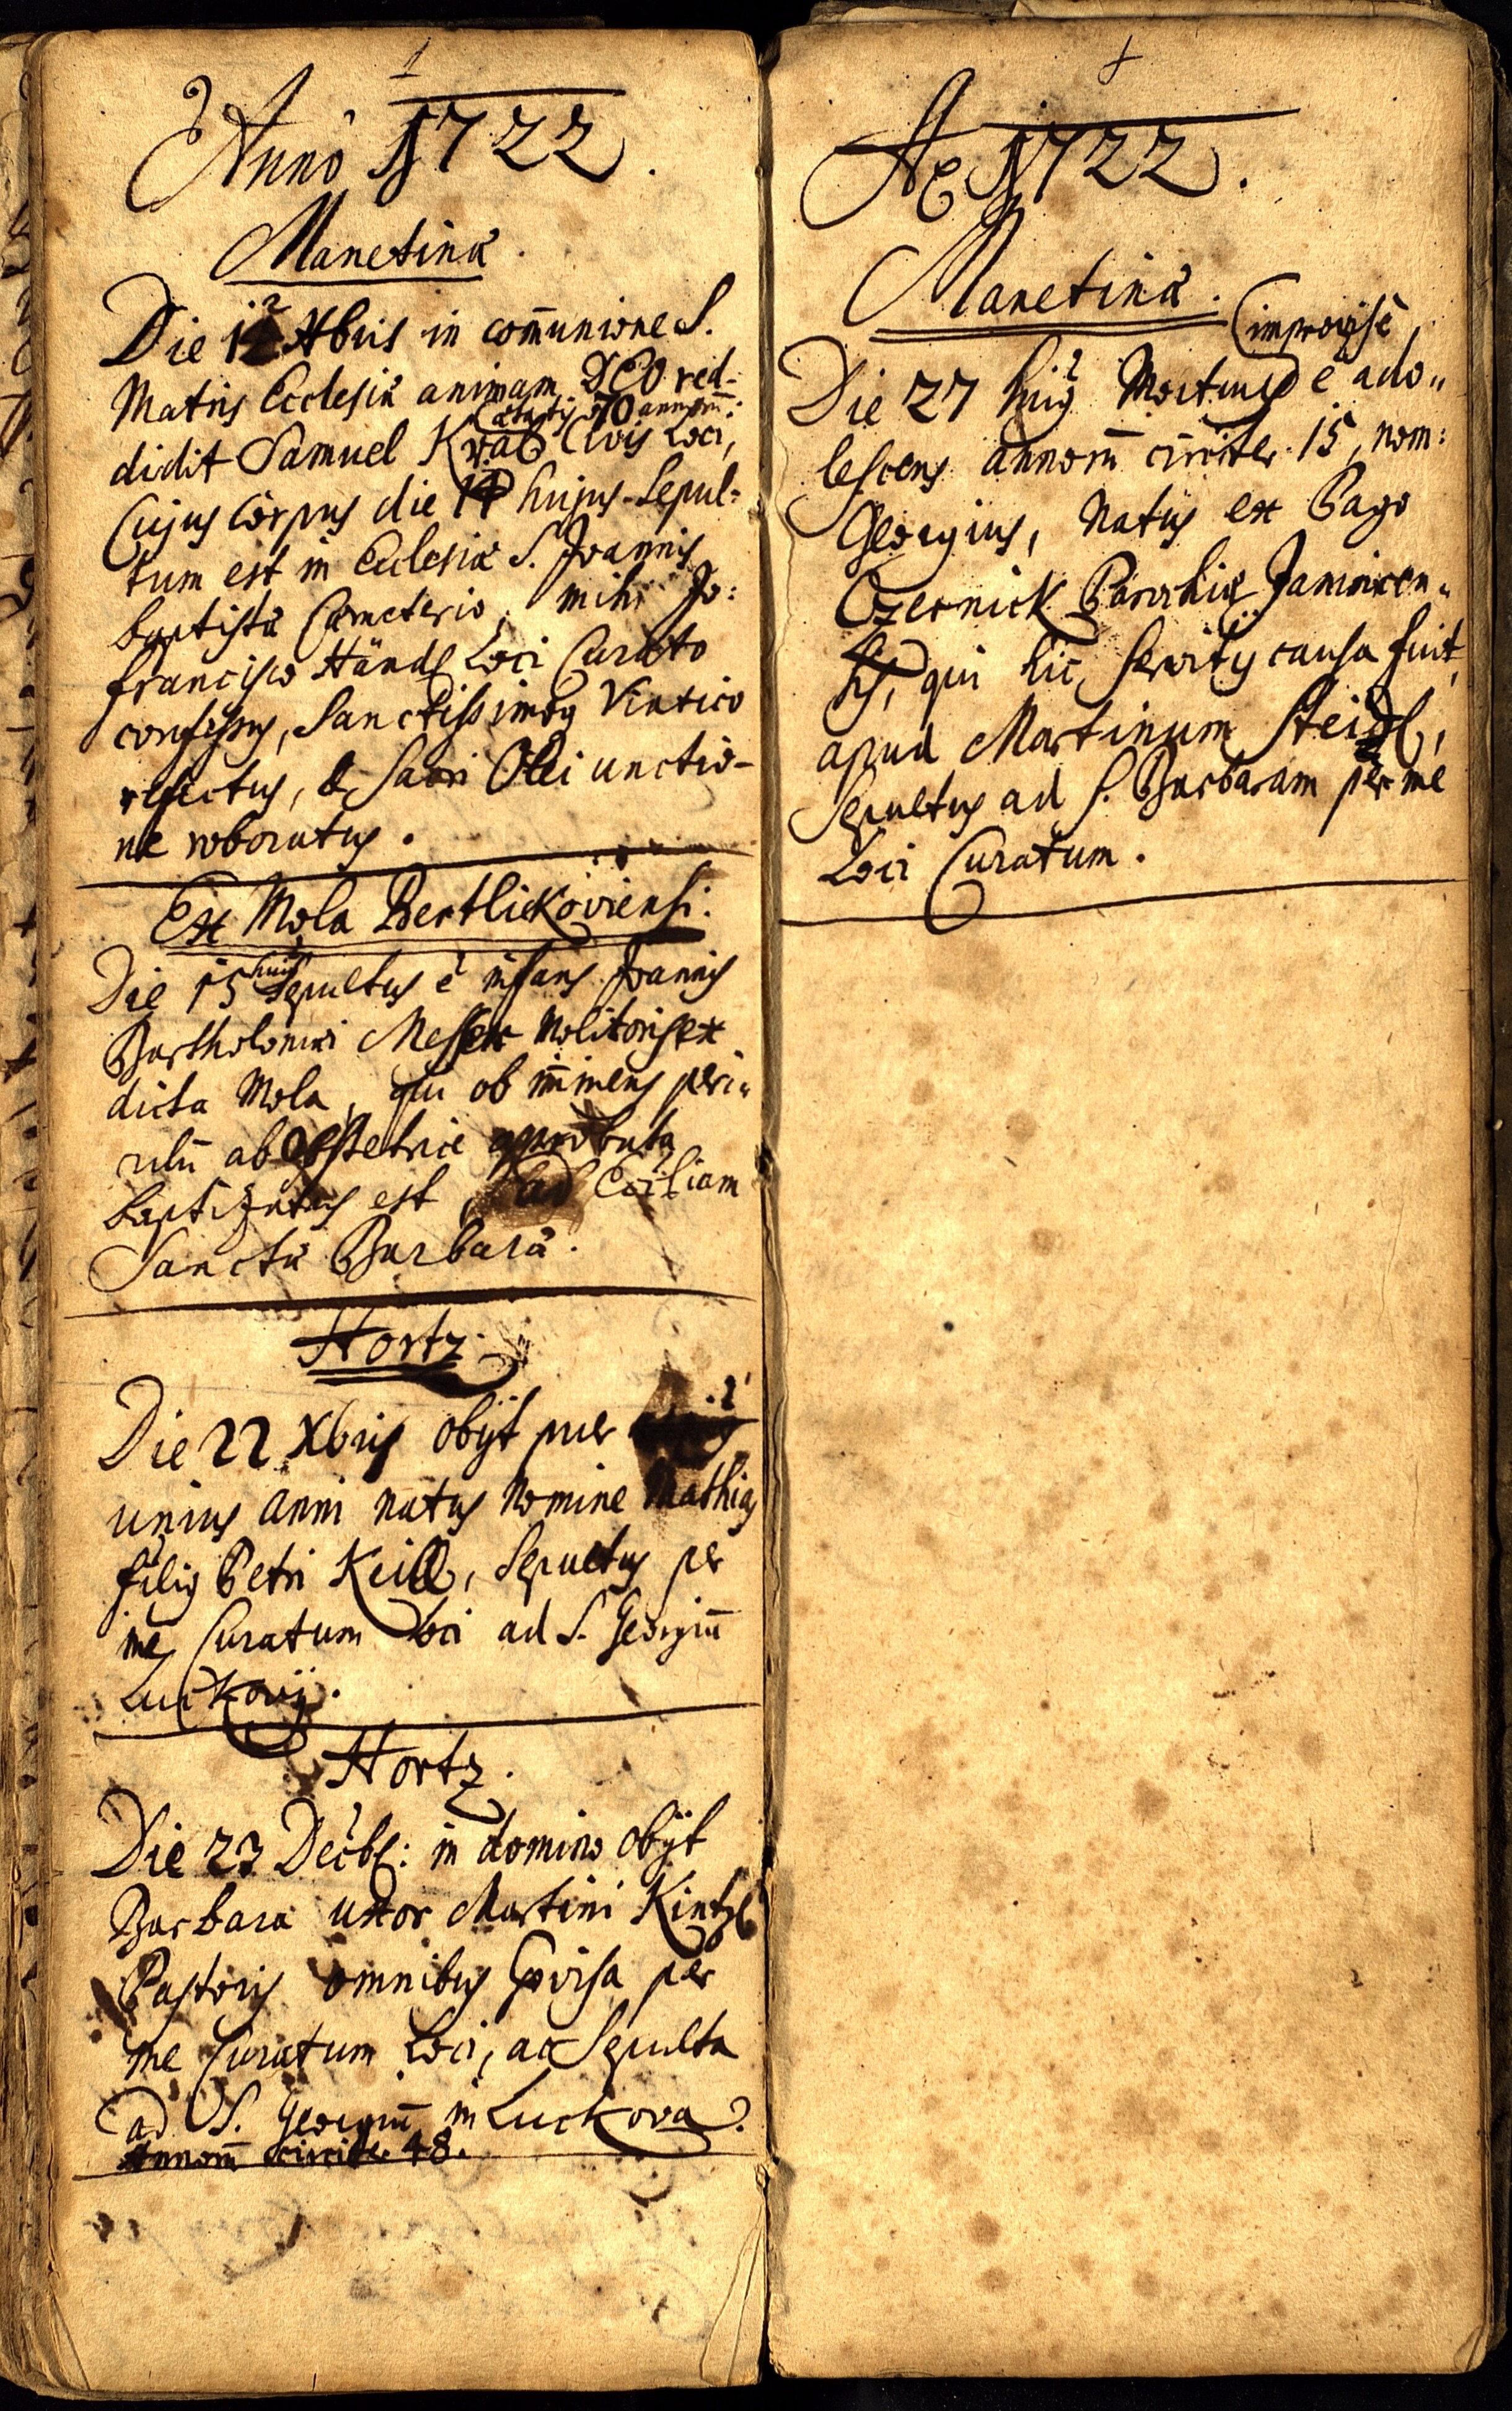 Anno 1722.
Manetinæ.
Die 12 Xbris in com̄unione S.
Matris Ecclesiæ animam DEO red-
ætatis 70 annorū:
didit Samuel Kwał Civis Loci,
Cujus Corpus die 14 hujus Sepul=
tum est in Eclesiæ S. Joannis
baptistæ Cæmeterio, mihi Jo:
francisco Händl Loci Curato
confessus, Sanctissimoq Viatico
refectus, & Sacri Olei unctio-
ne roboratus.
Ex Mola Bertlickoviensi.
Die 15 huig sepultus ē infans Joannis
Bartholomæi Messer Molitoris ex
dicta Mola, qui ob im̄inens peri=
culū ab obstetrice approbata
baptizatus est, ad Eccliam
Sanctæ Barbaræ.
Hortz.
Die 22 Xbris obijt puer
unius anni natus Nomine Mathias
filig Petri Keill, Sepultus per
me Curatum loci ad S. Georgiū
Luckovij.
Hortz.
Die 23 Decbr: in domino obijt
Barbara uxor Martini Kintzl
Pastoris omnibus provisa per
me Curatum Loci, ac Sepulta
ad S. Georgiū in Luckova.
Annorū circiter 48.
Ao 1722.
Manetinæ.
improvisè
Die 27 huig Mortuus ē ado=
lescens annorū circiter 15, nom:
Georgius, natus ex Pago
Czernick Parochiæ Jamnicen=
sis, qui hic servitÿ causa fuit
apud Martinum Steidl,
Sepultus ad S. Barbaram per me
Loci Curatum.